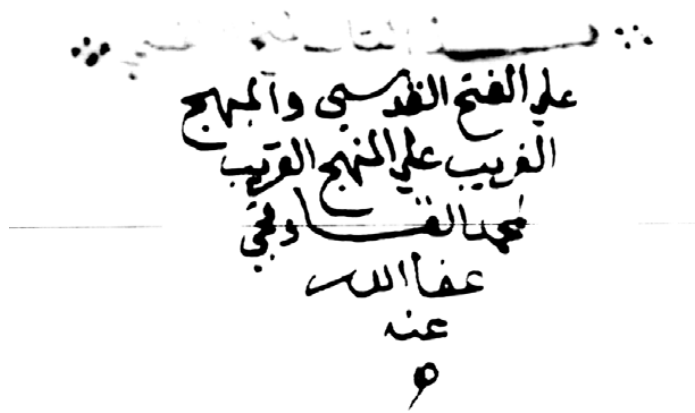 علي الفتح القدسي والمنهج
الغريب علي المنهج القريب
لمحمد القاوقجي
عفا الله
عنه
م